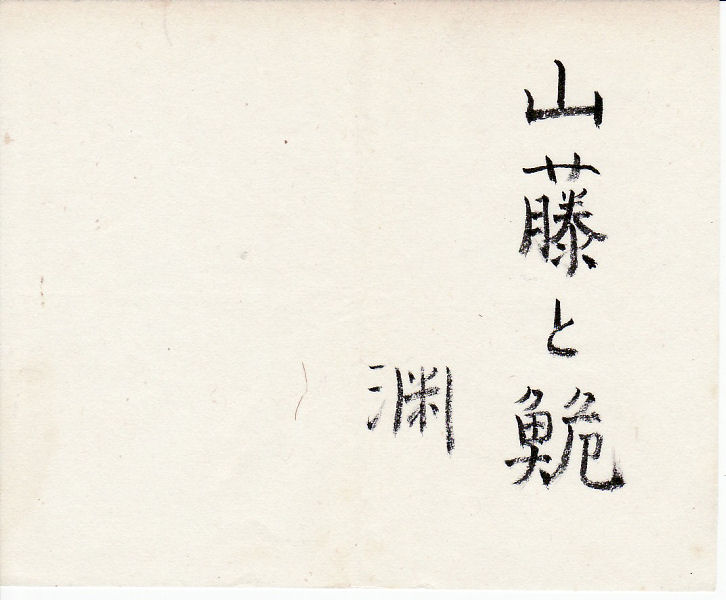 山藤と鮠
渊